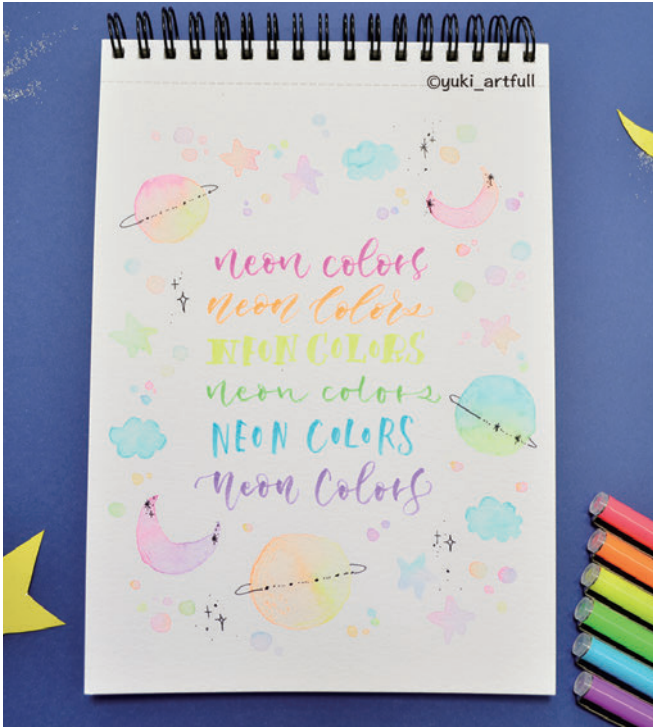 ©yuki_artfull
neon colors
neon colors
NEON COLORS
neon colors
NEON COLORS
neon colors